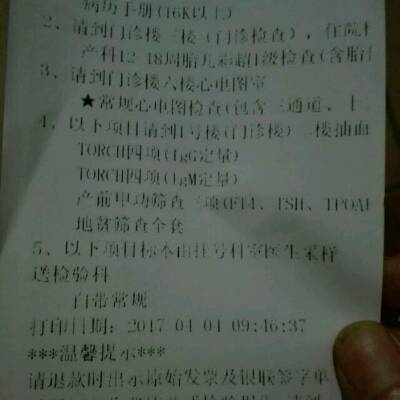 病历手册(16K以上)
2、请到门诊楼三楼(门诊检查)，住院
产科12-18周胎儿彩超Ⅰ级检查(含胎
3、请到门诊楼六楼心电图室
★常规心电图检查(包含三通道、十二
4、以下项目请到1号楼(门诊楼)二楼抽血
TORCH四项(IgG定量)
TORCH四项(IgM定量)
产前甲功筛查三项(FT4、TSH、TPOAb
地贫筛查全套
5、以下项目标本由挂号科室医生采样
送检验科
白带常规
打印日期: 2017-04-04 09:46:37
***温馨提示***
请退款时出示原始发票及银联签字单